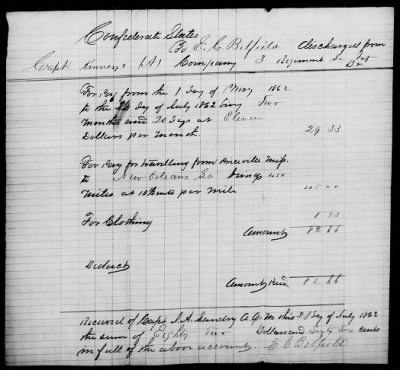 Confederate States
To E. C. Belfield discharged from
Capt Kinneys (A) Company 3 Regiment La
For Pay from the 1 day of May 1862
to the day of July 1862 being Two
months and 20 days at Eleven
Dollars per month 29 33
For Pay for travelling from Miss.
to New Orleans La being 450
miles at 10 cents per mile 45 00
For Clothing 8 33
Amounts 82 66
Deduct
Amounts due 82 66
Received of Capt A. Landry A.Q.M this day of July 1862
the sum of Eighty Two Dollars and Sixty Six cents
in full of the above account. E. C. Belfield